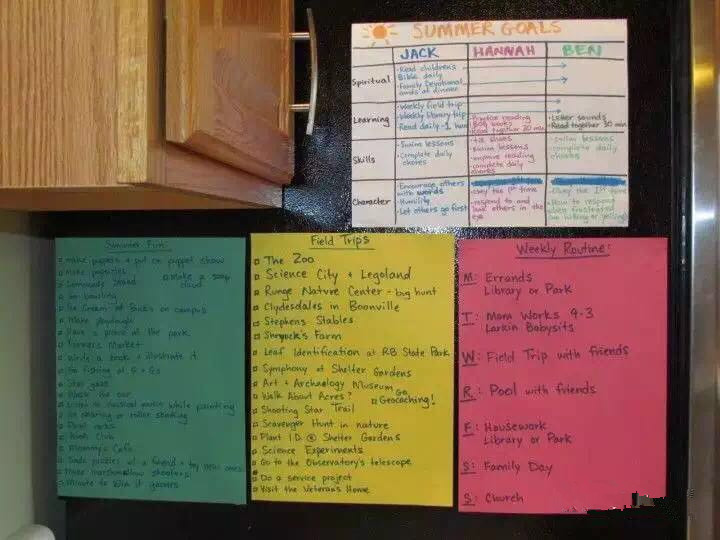 SUMMER GOALS
JACK HANNAH BEN
Spiritual
• Read children's
Bible daily
• Family Devotional
at dinner
Learning
• Weekly field trip
• Weekly library trip
• Read daily - 1 hour
• Practice reading
BOB books
• Read together 20 min
• Letter sounds
• Read together 30 min
Skills
• Swim lessons
• Complete daily
chores
• tie shoes
• swim lessons
• improve reading
• complete daily
chores
• swim lessons
• complete daily
chores
Character
• Encourage others
with words
• Humility
• Let others go first
• Obey the 1st time
• respond to and
look others in the
eye
• Obey the 1st time
• How to respond
when frustrated
Summer Fun
make puppets + put on puppet show
make popsicles
make a soap
cloud
Lemonade stand
Go bowling
Ice Cream at Buck's on campus
Make playdough
Have a picnic at the park
Farmers Market
Write a book + illustrate it
Go fishing at G + G's
Star gaze
Wash the car
Listen to classical music while painting
Ice skating or roller skating
Book Club
Mommy's Cafe
puzzles w/ a friend + try new ones
Make marshmallow shooters
Minute to Win it games
Field Trips
The Zoo
Science City + Legoland
Runge Nature Center - bug hunt
Clydesdales in Boonville
Stephens Stables
Shryock's Farm
Leaf Identification at RB State Park
Symphony at Shelter Gardens
Art + Archeology Museum
Walk About Acres?
Go
Geocaching!
Shooting Star Trail
Scavenger Hunt in nature
Plant I.D. @ Shelter Gardens
Science Experiments
Go to the Observatory's telescope
Do a service project
Visit the Veteran's Home
Weekly Routine:
M: Errands
Library or Park
T: Mom Works 9-3
Larkin Babysits
W: Field Trip with friends
R: Pool with friends
F: Housework
Library or Park
S: Family Day
S: Church